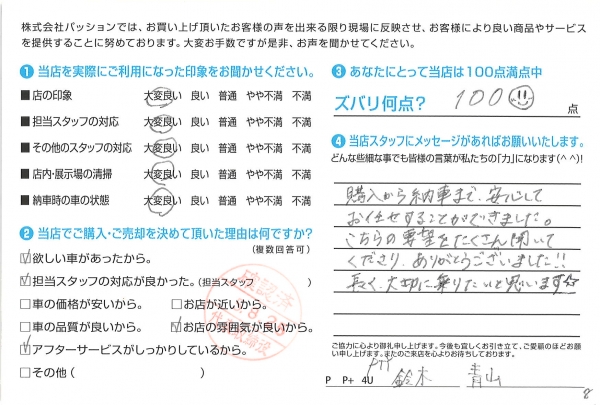 株式会社パッションでは、お買い上げ頂いたお客様の声を出来る限り現場に反映させ、お客様により良い商品やサービス
を提供することに努めております。大変お手数ですが是非、お声を聞かせてください。
❶ 当店を実際にご利用になった印象をお聞かせください。
■ 店の印象 大変良い 良い 普通 やや不満 不満
■ 担当スタッフの対応 大変良い 良い 普通 やや不満 不満
■ その他のスタッフの対応 大変良い 良い 普通 やや不満 不満
■ 店内・展示場の清掃 大変良い 良い 普通 やや不満 不満
■ 納車時の車の状態 大変良い 良い 普通 やや不満 不満
❷ 当店でご購入・ご売却を決めて頂いた理由は何ですか?
(複数回答可)
☑欲しい車があったから。
☑担当スタッフの対応が良かった。(担当スタッフ )
□車の価格が安いから。 □お店が近いから。
□車の品質が良いから。 ☑お店の雰囲気が良いから。
☑アフターサービスがしっかりしているから。
□その他( )
確認済
代表取締役
❸ あなたにとって当店は100点満点中
ズバリ何点? 100 点
❹ 当店スタッフにメッセージがあればお願いいたします。
どんな些細な事でも皆様の言葉が私たちの「力」になります(^^)!
購入から納車まで、安心して
お任せすることができました。
こちらの要望をたくさん聞いて
くださり、ありがとうございました!!
長く、大切に乗りたいと思います☆
ご協力に心より御礼申し上げます。今後も宜しくお引き立て、ご愛顧のほどお願
い申し上げます。またのご来店を心よりお待ちしております。
P P+ 4U 鈴木 青山